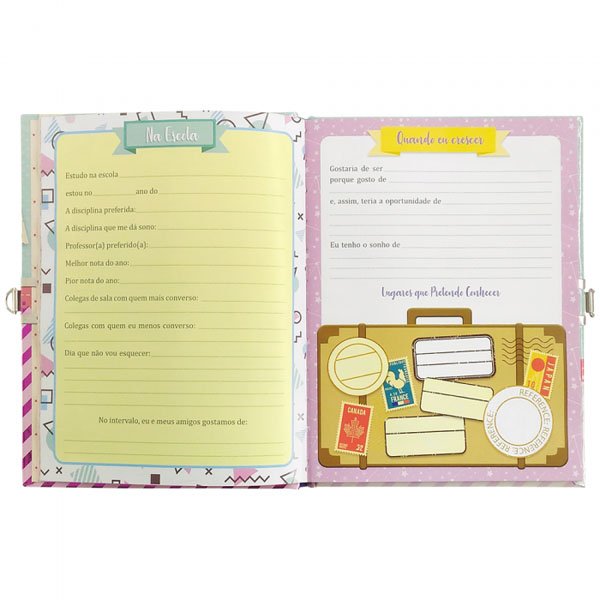 Na Escola
Estudo na escola
estou no ano do
A disciplina preferida:
A disciplina que me dá sono:
Professor(a) preferido(a):
Melhor nota do ano:
Pior nota do ano:
Colegas de sala com quem mais converso:
Colegas com quem eu menos converso:
Dia que não vou esquecer:
No intervalo, eu e meus amigos gostamos de:
Quando eu crescer
Gostaria de ser
porque gosto de
e, assim, teria a oportunidade de
Eu tenho o sonho de
Lugares que Pretendo Conhecer
FRANCE
JAPAN
CANADA
REFERENCE: REFERENCE: REFERENCE: